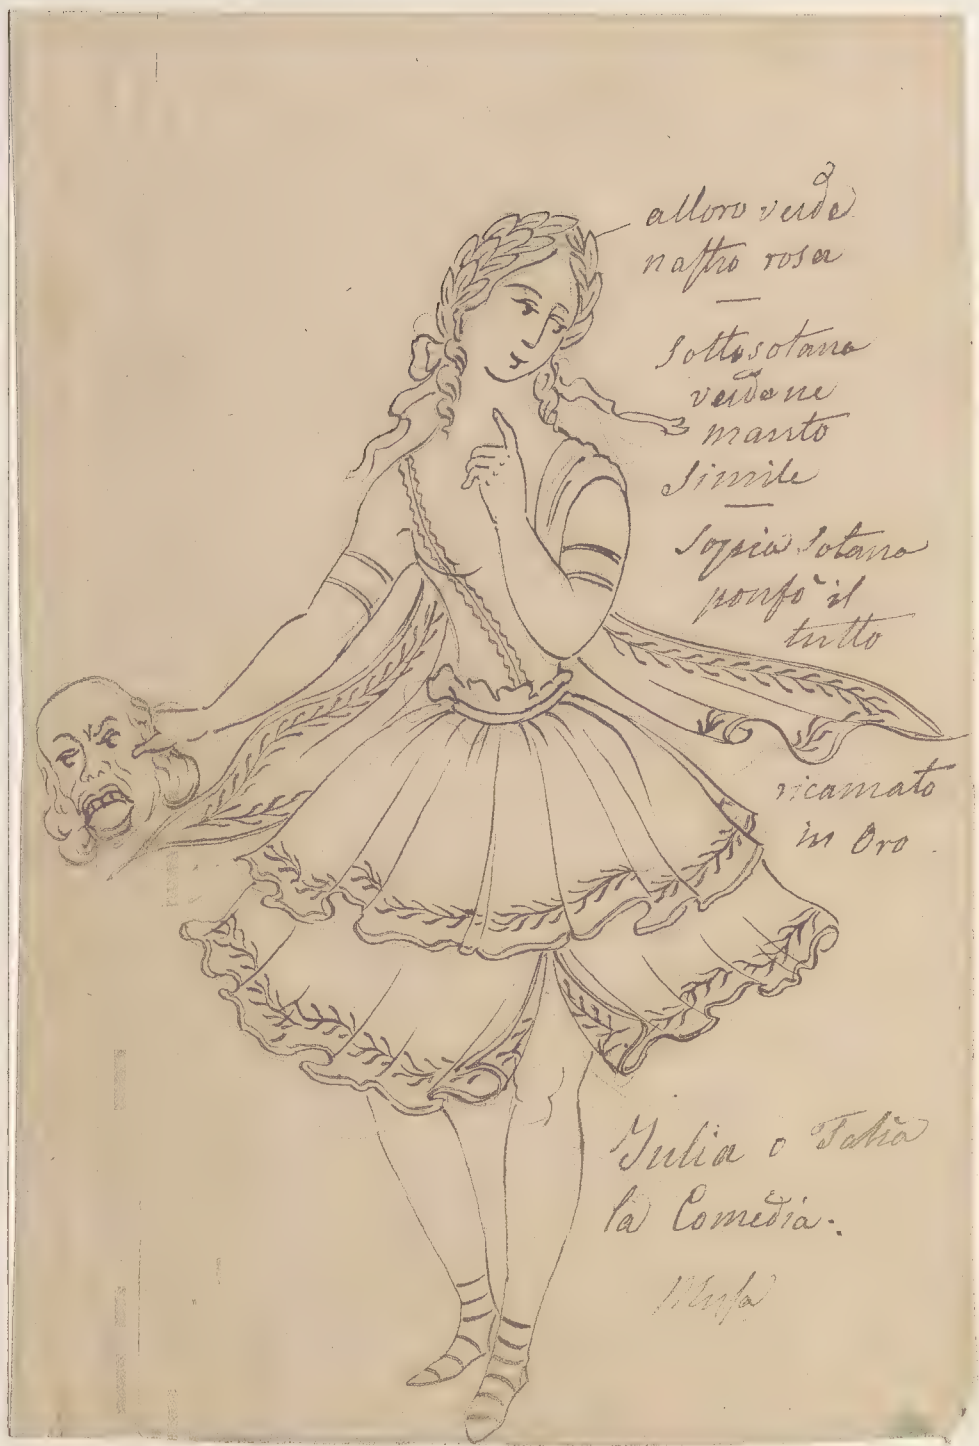 alloro verde
nastro rosa
Sottosotana
verdone
manto
simile
Sopra Sotana
ponsò il
tutto
ricamato
in Oro
Julia o Talia
la Comedia.
Musa